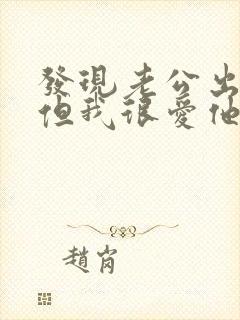 發現老公出
但我很愛他
趙崗